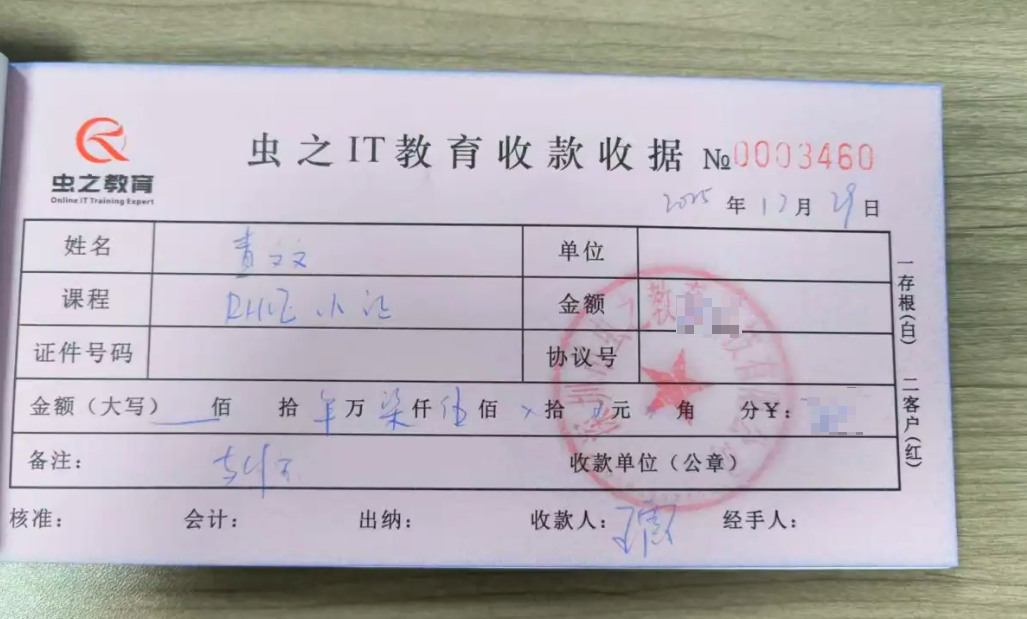 虫之教育
Online IT Training Expert
虫之IT教育收款收据 №0003460
2025年12月29日
姓名 青文文 单位
课程 RHCE 小班 金额
证件号码 协议号
金额（大写） 佰 拾 万 柒仟伍佰 拾 元 角 分￥：
备注：
收款单位（公章）
核准： 会计： 出纳： 收款人： 经手人：
一存根(白) 二客户(红)